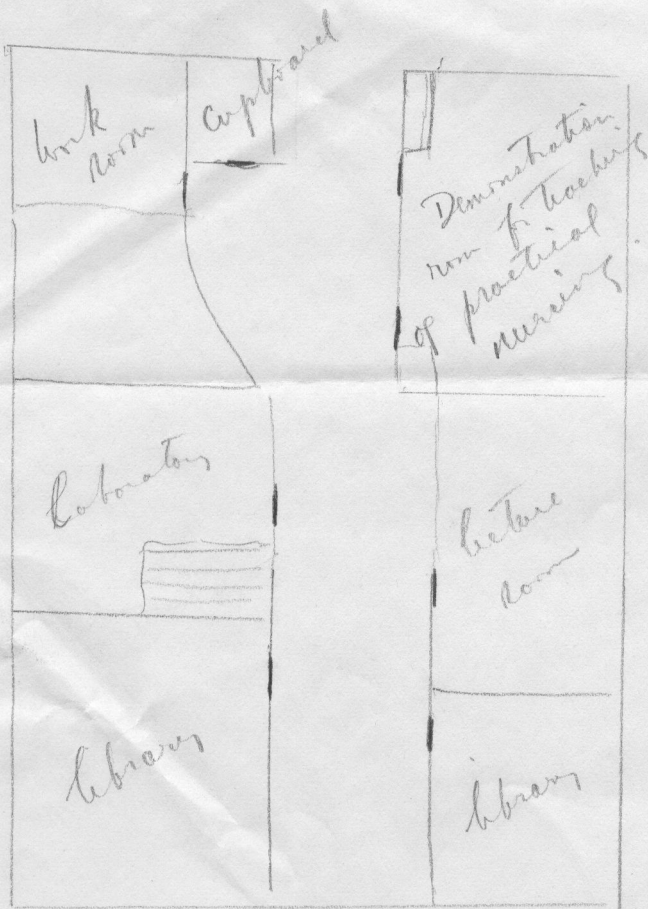 Work
room
Cupboard
Demonstration
room for teaching
of practical
nursing.
Laboratory
Lecture
room
library
library